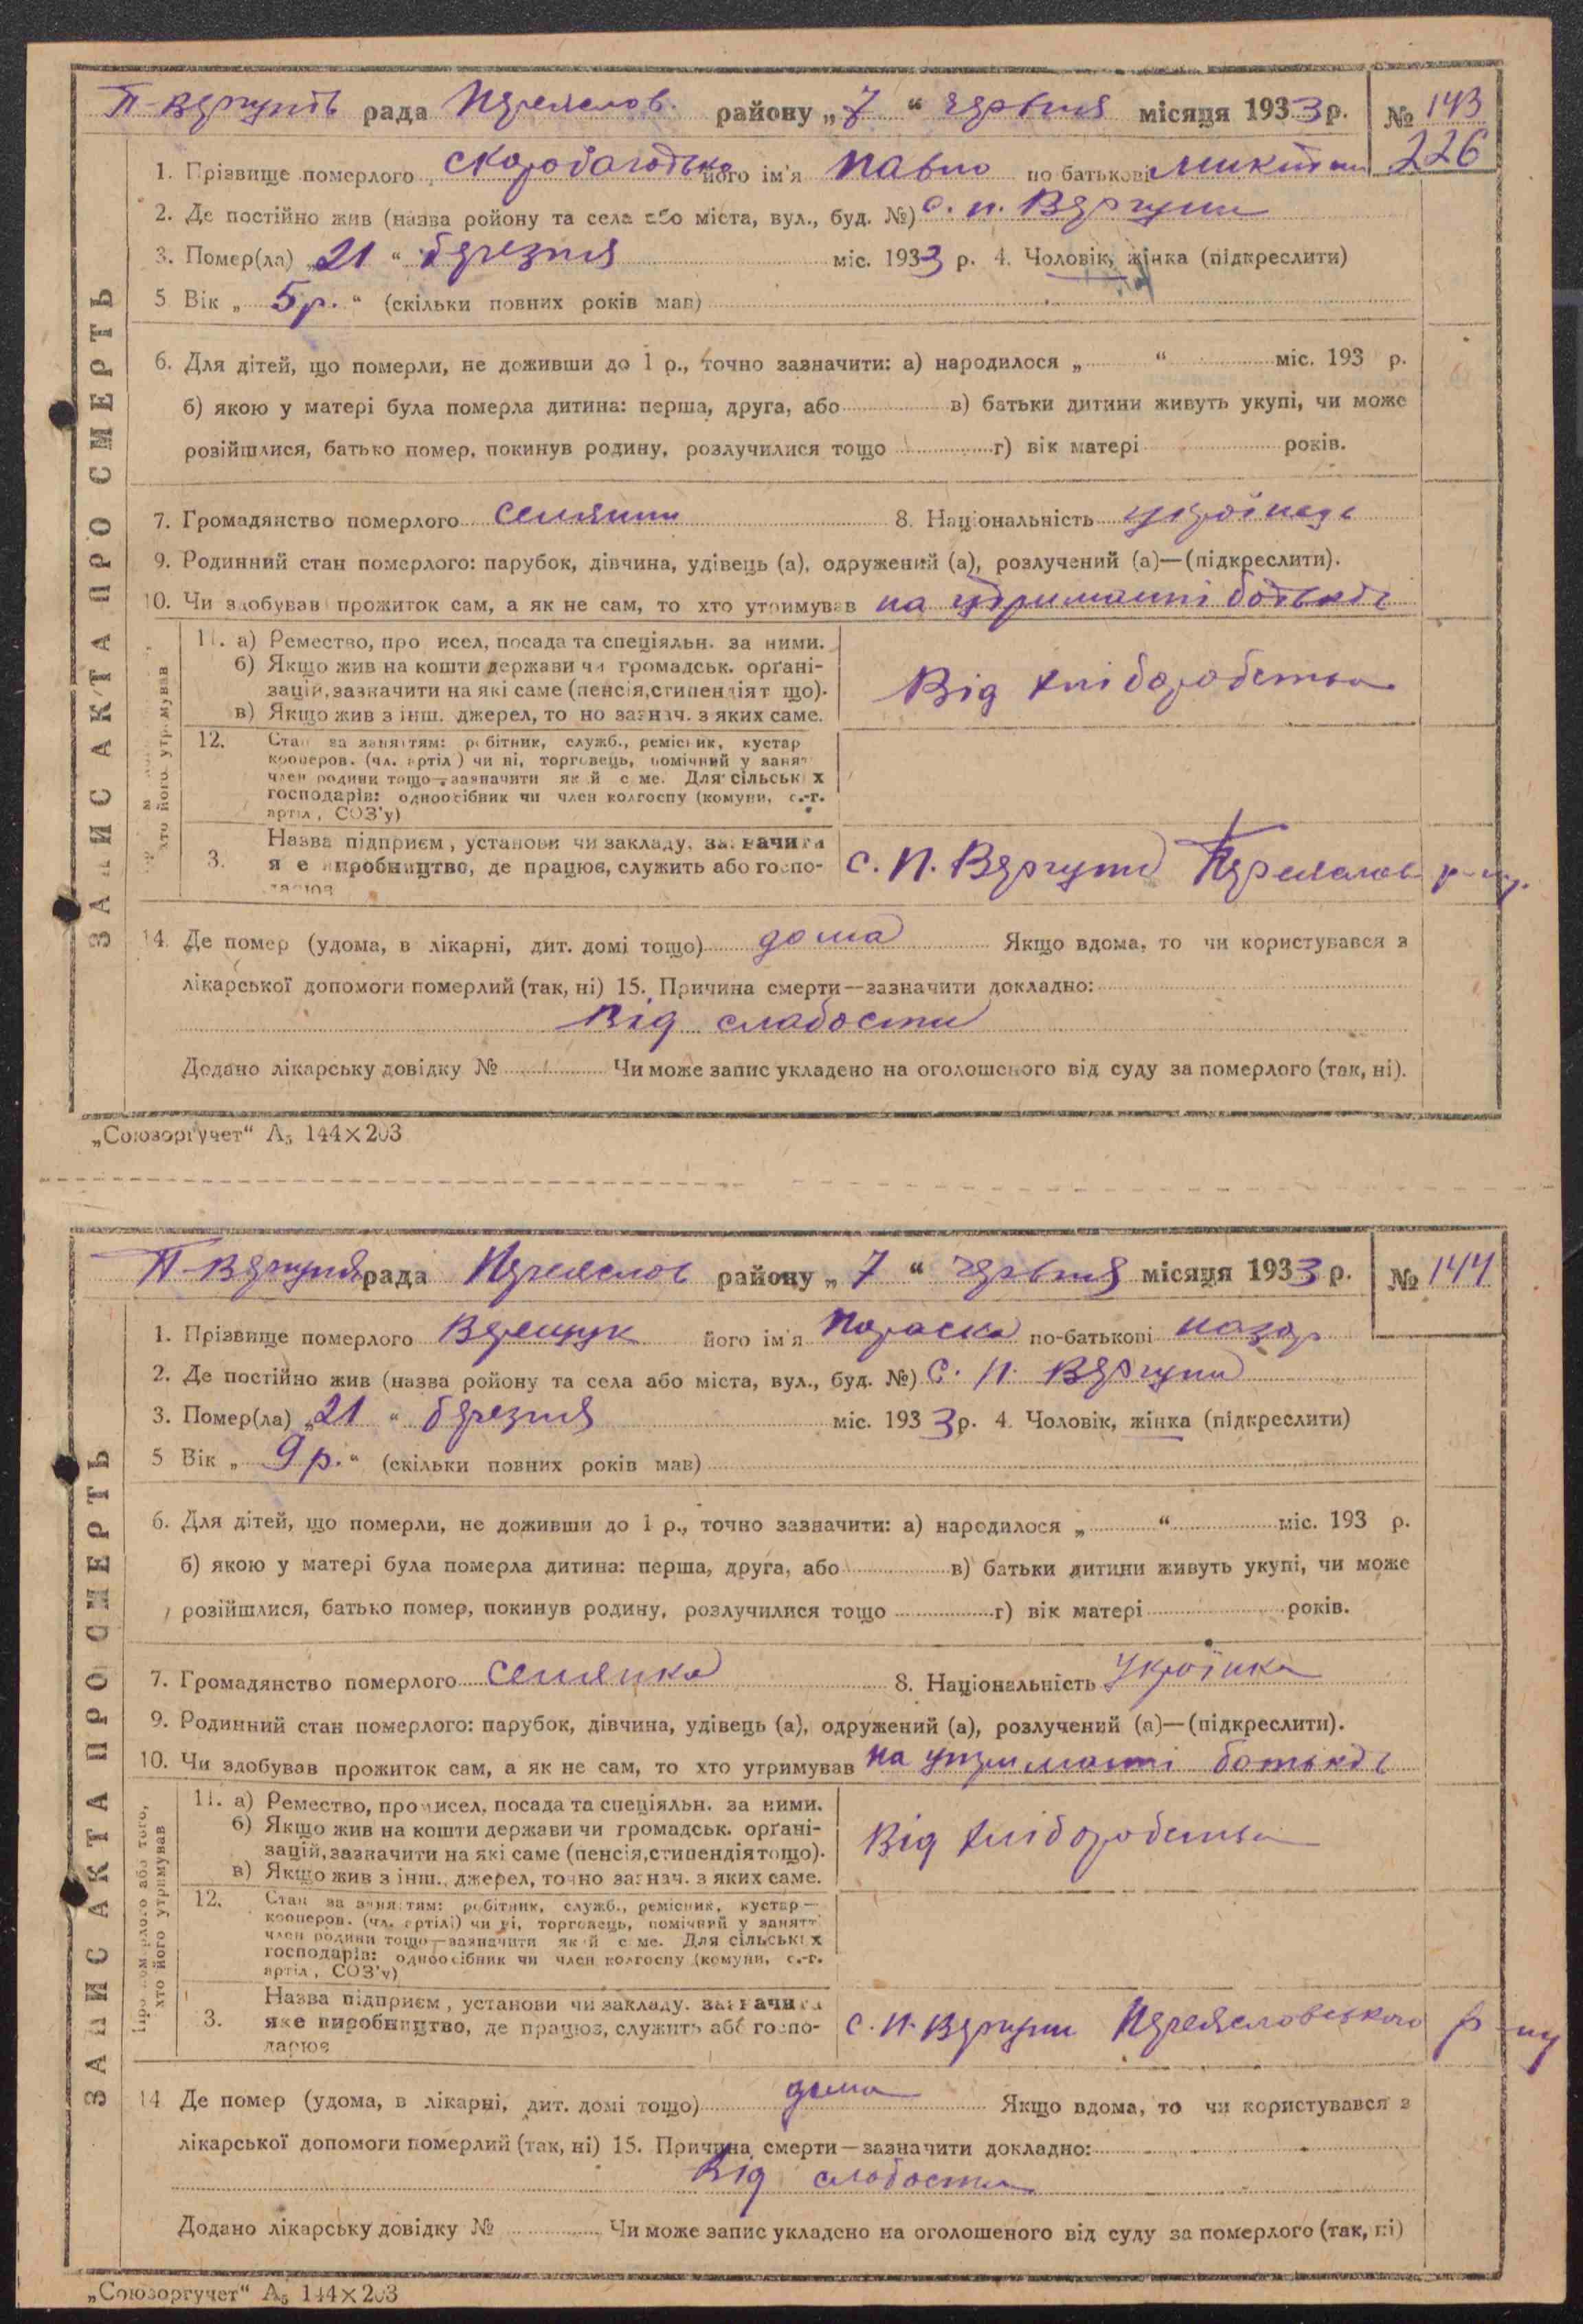 П-Вергунів рада Переяслов. району „7“ червня місяця 1933 р. № 143
226
ЗАПИС АКТА ПРО СМЕРТЬ
1. Прізвище померлого Скоробагатько його ім'я Павло по батькові Микитов
2. Де постійно жив (назва ройону та села або міста, вул., буд. №) с. п. Вергуни
3. Помер(ла) „21“ березня міс. 1933 р. 4. Чоловік, жінка (підкреслити)
5 Вік „5 р.“ (скільки повних років мав)
6. Для дітей, що померли, не доживши до 1 р., точно зазначити: а) народилося „ “ міс. 193 р.
б) якою у матері була померла дитина: перша, друга, або в) батьки дитини живуть укупі, чи може
розійшлися, батько помер, покинув родину, розлучилися тощо г) вік матері років.
7. Громадянство померлого селянин 8. Національність українець
9. Родинний стан померлого: парубок, дівчина, удівець (а), одружений (а), розлучений (а)—(підкреслити).
10. Чи здобував прожиток сам, а як не сам, то хто утримував на утриманні батьків
хто його утримував
11. а) Ремество, про исел, посада та спеціяльн. за ними.
б) Якщо жив на кошти держави чи громадськ. орґані-
зацій, зазначити на які саме (пенсія, стипендіят що).
в) Якщо жив з інш. джерел, то но зазнач. з яких саме.
Від хліборобства
12. Стан за заняттям: робітник, служб., ремісник, кустар
кооперов. (чл. артіл ) чи ні, торговець, помічний у занят
член родини тощо—зазначити як й с ме. Для сільськ х
господарів: одноосібник чи член колгоспу (комуни, с.-г.
артіл , СОЗ'у)
3. Назва підприєм , установи чи закладу, зазначити
я е виробництво, де працює, служить або госпо-
дарює
с. П. Вергуни Переяслов р-ну.
14. Де помер (удома, в лікарні, дит. домі тощо) дома Якщо вдома, то чи користувався з
лікарської допомоги померлий (так, ні) 15. Причина смерти—зазначити докладно:
Від слабости
Додано лікарську довідку № Чи може запис укладено на оголошеного від суду за померлого (так, ні).
„Союзоргучет“ А5 144×203
П-Вергуня рада Переяслов району „7“ червня місяця 1933 р. № 144
ЗАПИС АКТА ПРО СМЕРТЬ
1. Прізвище померлого Верещук його ім'я Параска по-батькові Назар
2. Де постійно жив (назва ройону та села або міста, вул., буд. №) с. п. Вергуни
3. Помер(ла) „21“ березня міс. 1933 р. 4. Чоловік, жінка (підкреслити)
5 Вік „9 р.“ (скільки повних років мав)
6. Для дітей, що померли, не доживши до 1 р., точно зазначити: а) народилося „ “ міс. 193 р.
б) якою у матері була померла дитина: перша, друга, або в) батьки дитини живуть укупі, чи може
розійшлися, батько помер, покинув родину, розлучилися тощо г) вік матері років.
7. Громадянство померлого селянка 8. Національність Українка
9. Родинний стан померлого: парубок, дівчина, удівець (а), одружений (а), розлучений (а)—(підкреслити).
10. Чи здобував прожиток сам, а як не сам, то хто утримував на утриманні батьків
Про померлого або того,
хто його утримував
11. а) Ремество, промисел, посада та спеціяльн. за ними.
б) Якщо жив на кошти держави чи громадськ. орґані-
зацій, зазначити на які саме (пенсія, стипендія тощо).
в) Якщо жив з інш. джерел, точно зазнач. з яких саме.
Від хліборобства
12. Стан за заняттям: робітник, служб., ремісник, кустар—
кооперов. (чл. артілі) чи ні, торговець, помічний у занятт
член родини тощо—зазначити як й с ме. Для сільськ х
господарів: одноосібник чи член колгоспу (комуни, с.-г.
артіл , СОЗ'у)
3. Назва підприєм , установи чи закладу, зазначити
яке виробництво, де працює, служить або госпо-
дарює
с. П. Вергуни Переясловського р-ну
14 Де помер (удома, в лікарні, дит. домі тощо) дома Якщо вдома, то чи користувався з
лікарської допомоги померлий (так, ні) 15. Причина смерти—зазначити докладно:
Від слабости
Додано лікарську довідку № Чи може запис укладено на оголошеного від суду за померлого (так, ні)
„Союзоргучет“ А5 144×203